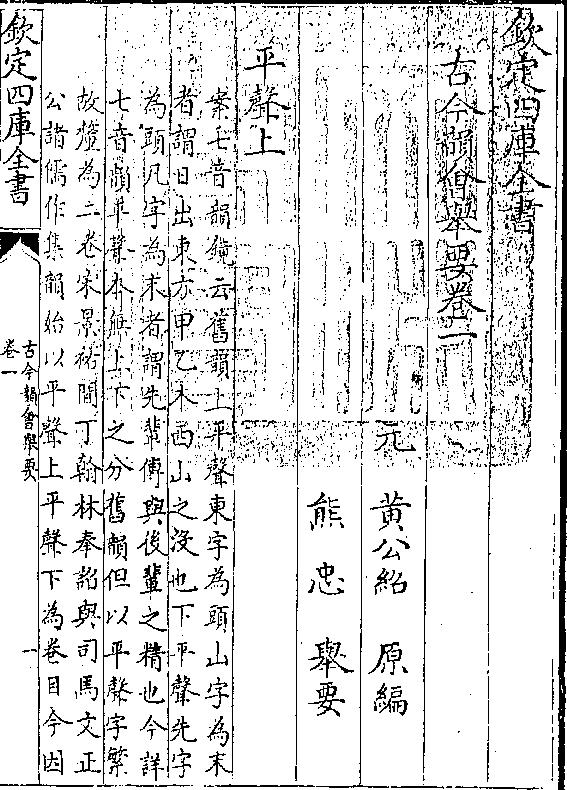 欽定四庫全書
古今韻會舉要卷一
元 黃公紹 原編
熊忠 舉要
平聲上
案七音韻鏡云舊韻上平聲東字為頭山字為末
者謂日出東方甲乙木西山之沒也下平聲先字
為頭凡字為末者謂先輩傳與後輩之精也今詳
七音韻平聲本無上下之分舊韻但以平聲字繁
故釐為二卷宋景祐間丁翰林奉詔與司馬文正
公諸儒作集韻始以平聲上平聲下為卷目今因
欽定四庫全書
古今韻會舉要
卷一
一